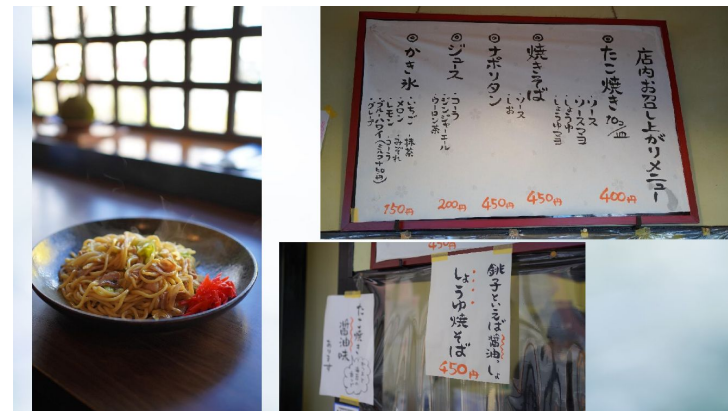 店内お召し上がりメニュー
◎たこ焼き 10コ/皿
・ソース
・ソースマヨ
・しょうゆ
・しょうゆマヨ
400円
◎焼きそば
・ソース
・しお
450円
◎ナポリタン
450円
◎ジュース
・コーラ
・ジンジャーエール
・ウーロン茶
200円
◎かき氷
・いちご ・抹茶
・メロン ・みぞれ
・レモン ・コーラ
・ブルーハワイ
・グレープ
150円
450円
銚子といえば醤油っしょ
しょうゆ焼そば
450円
たこ焼き
醤油味
あります